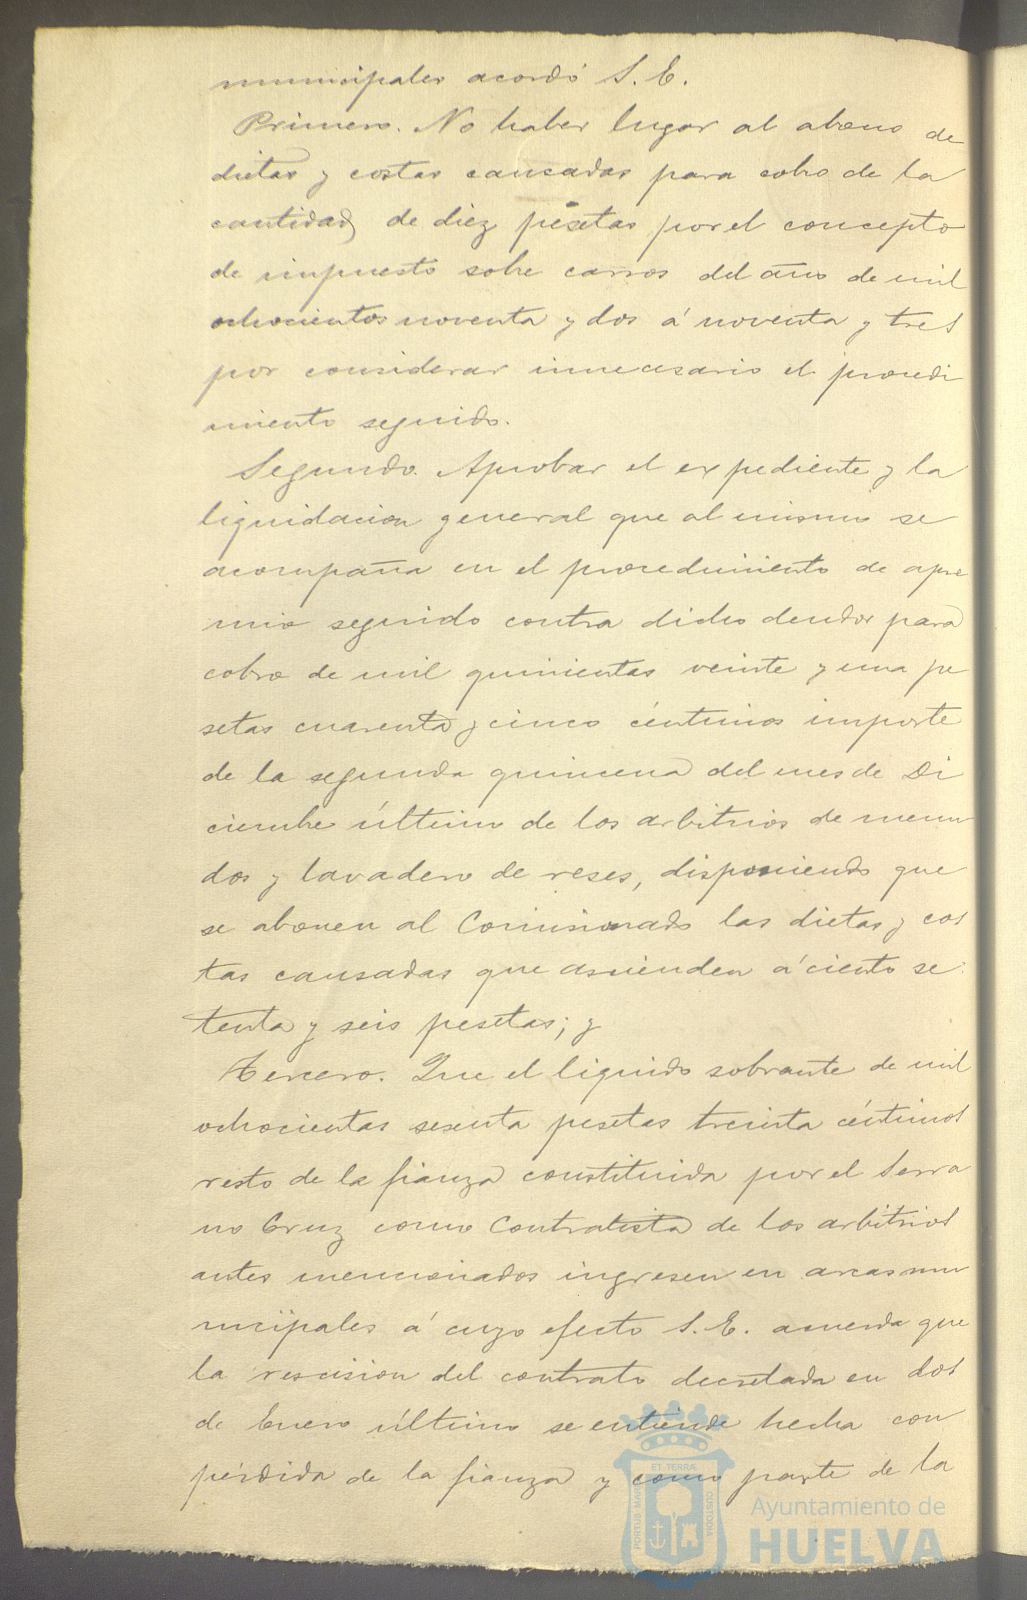 municipales acordó S. E.
Primero. No haber lugar al abono de
dietas y costas causadas para cobro de la
cantidad de diez pesetas por el concepto
de impuesto sobre carros del año de mil
ochocientos noventa y dos á noventa y tres
por considerar innecesario el procedi
miento seguido.
Segundo. Aprobar el expediente y la
liquidacion general que al mismo se
acompaña en el procedimiento de apre
mio seguido contra dicho deudor para
cobro de mil quinientas veinte y una pe
setas cuarenta y cinco céntimos importe
de la segunda quincena del mes de Di
ciembre último de los arbitrios de menu
dos y lavadero de reses, disponiendo que
se abonen al Comisionado las dietas y cos
tas causadas que ascienden á ciento se
tenta y seis pesetas; y
Tercero. Que el liquido sobrante de mil
ochocientas sesenta pesetas treinta céntimos
resto de la fianza constituida por el Serra
no Cruz como Contratista de los arbitrios
antes mencionados ingresen en arcas mu
nicipales á cuyo efecto S. E. acuerda que
la rescision del contrato decretada en dos
de Enero último se entiende hecha con
pérdida de la fianza y como parte de la
PORTUS MARIS ET TERRÆ CUSTODIA
Ayuntamiento de
HUELVA